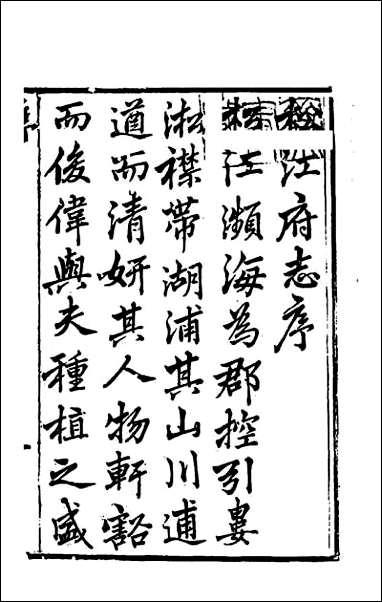 松江府志序
松江瀕海為郡控引婁
淞襟帶湖浦其山川逋
遒而清妍其人物軒豁
而俊偉與夫種植之盛